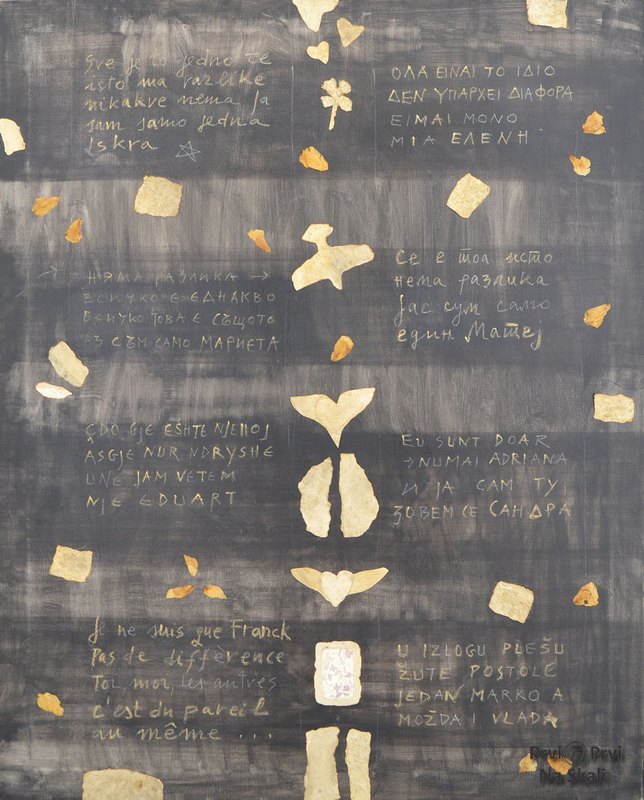 Sve je to jedno te
isto ma razlike
nikakve nema ja
sam samo jedna
iskra
ΟΛΑ ΕΙΝΑΙ ΤΟ ΙΔΙΟ
ΔΕΝ ΥΠΑΡΧΕΙ ΔΙΑΦΟΡΑ
ΕΙΜΑΙ ΜΟΝΟ
ΜΙΑ ΕΛΕΝΗ
НЯМА РАЗЛИКА →
ВСИЧКО Е ЕДНАКВО
ВСИЧКО ТОВА Е СЪЩОТО
АЗ СЪМ САМО МАРИЕТА
Се е тоа исто
нема разлика
Јас сум само
един Матеј
ÇDO GJE ESHTE NJELLOJ
ASGJE NUK NDRYSHE
UNE JAM VETEM
NJE EDUART
EU SUNT DOAR
→ NUMAI ADRIANA
И ЈА САМ ТУ,
ЗОВЕМ СЕ САНДРА
Je ne suis que Franck
Pas de différence
Toi, moi, les autres
C'est du pareil
au même ...
U IZLOGU PLEŠU
ŽUTE POSTOLE
JEDAN MARKO A
MOŽDA I VLADA
Prvi Prvi
Na Skali